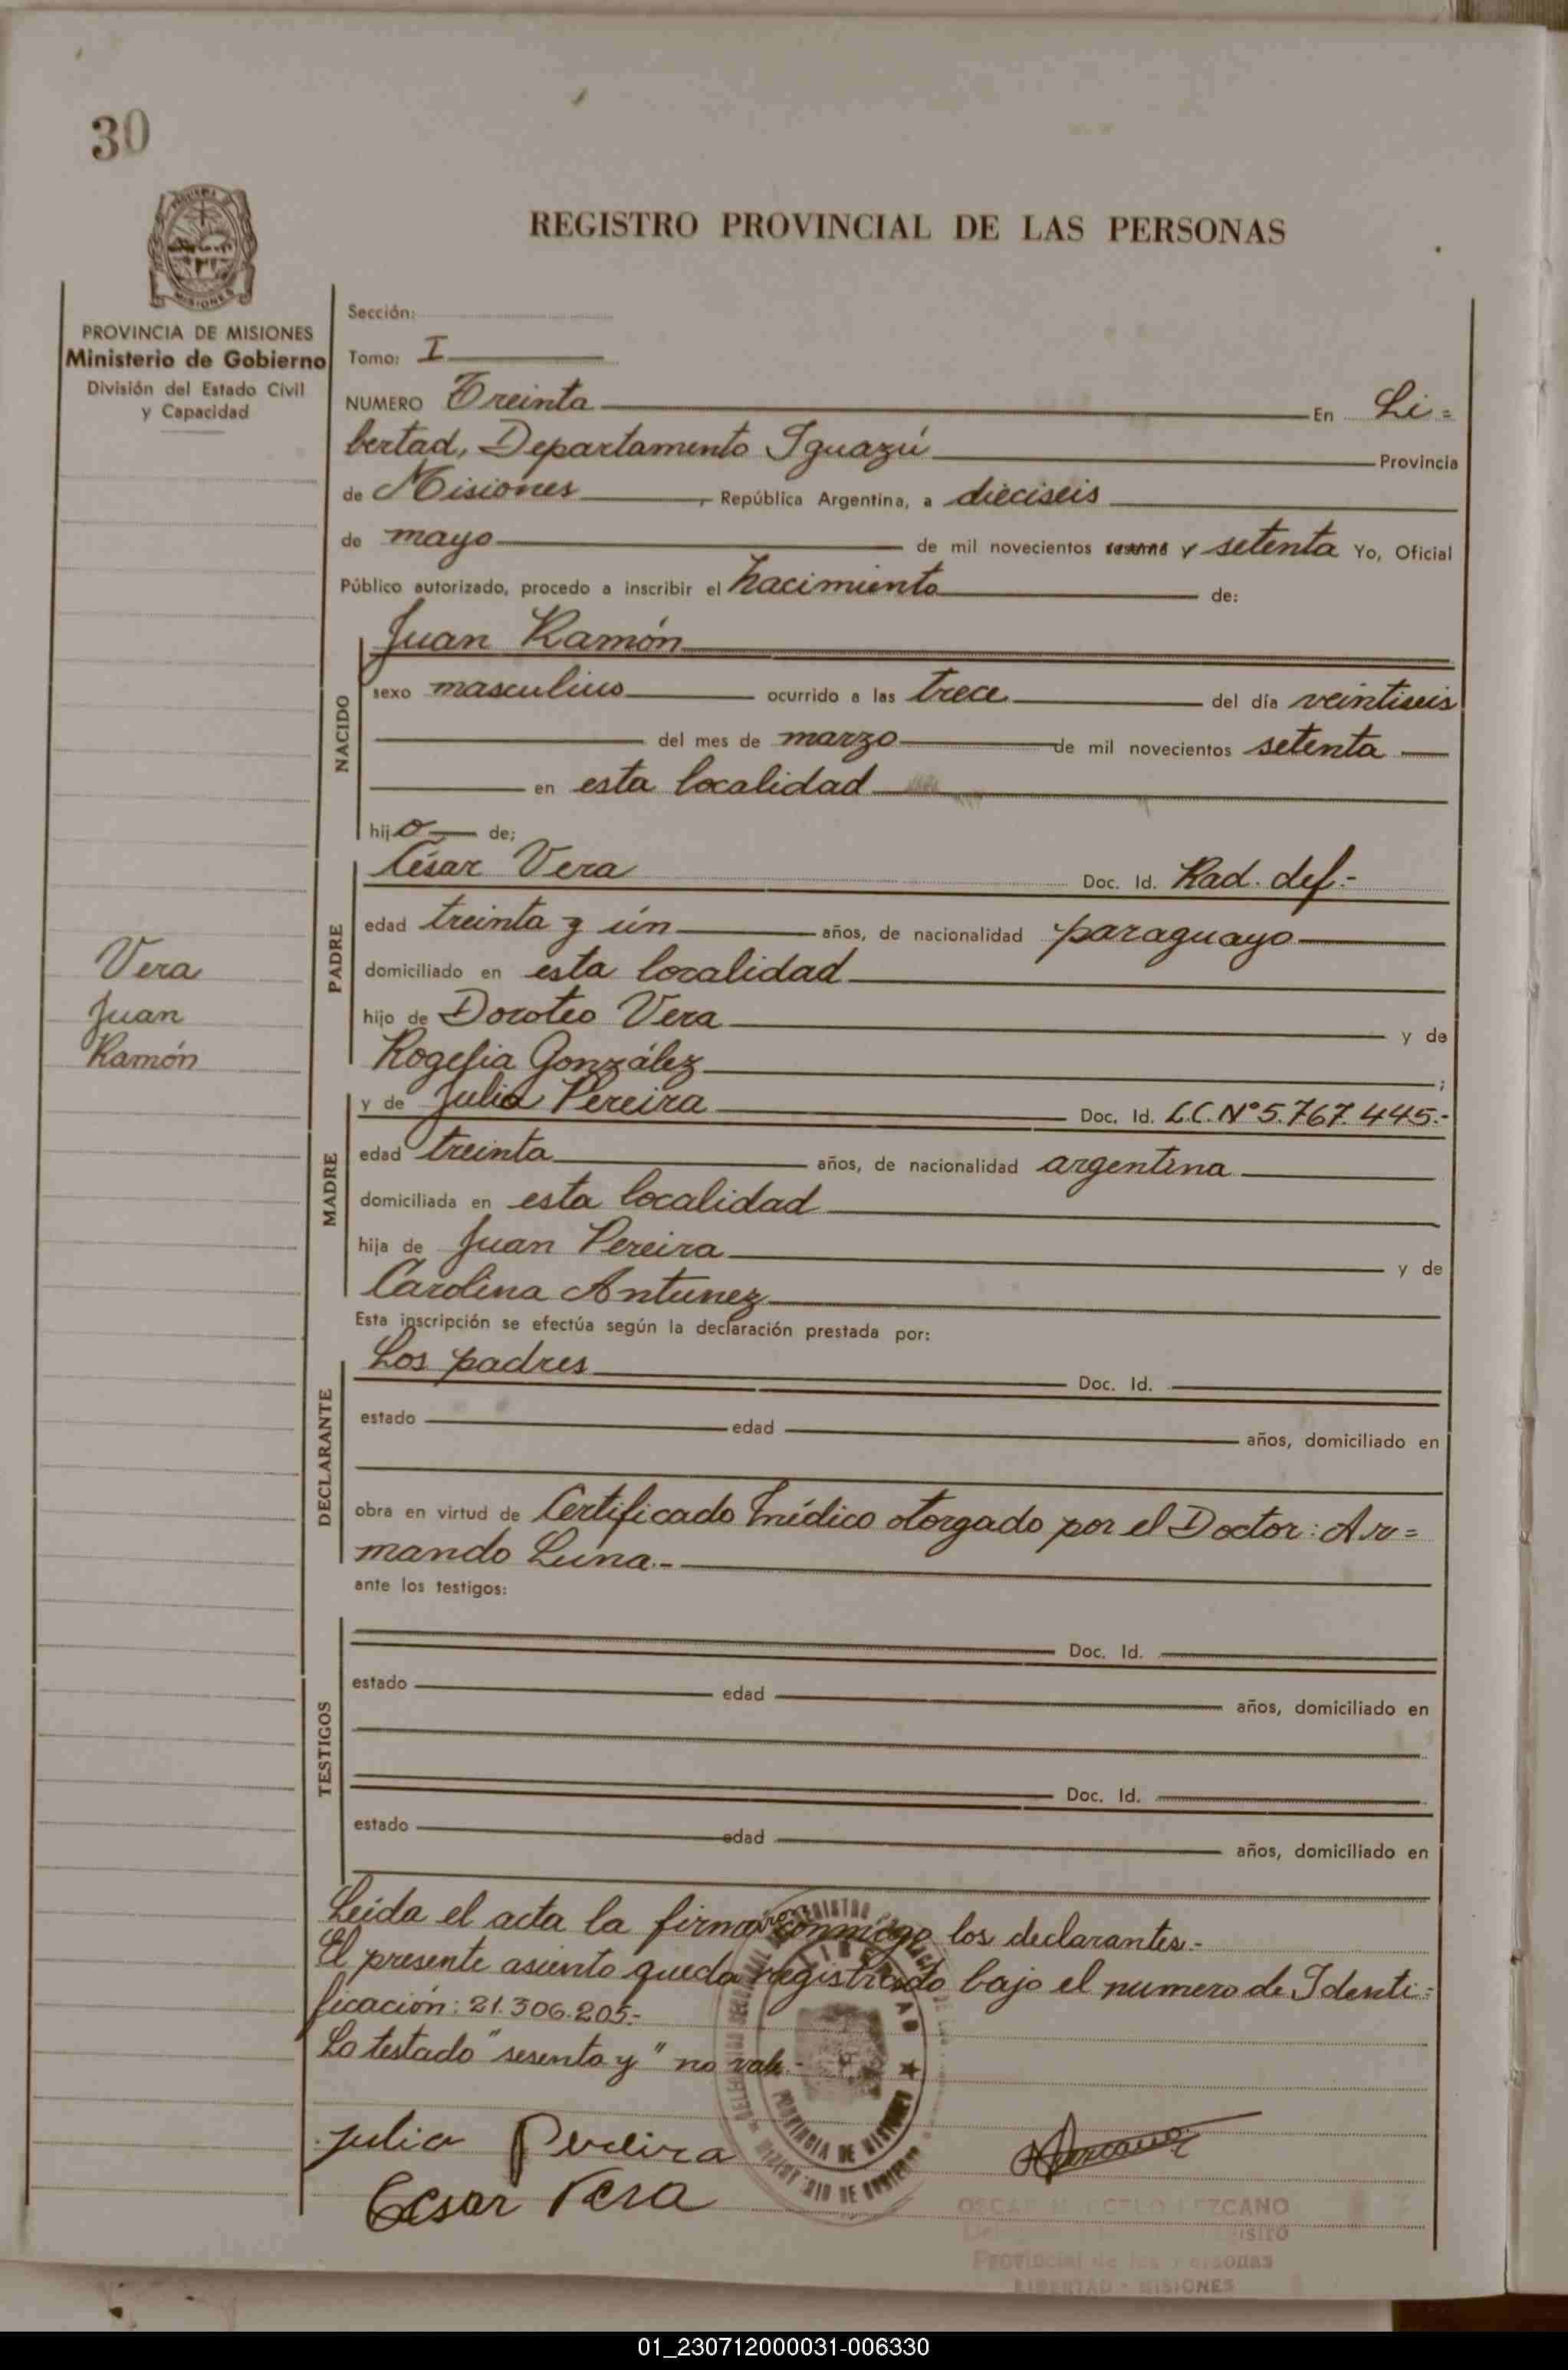 30
REGISTRO PROVINCIAL DE LAS PERSONAS
MISIONES
PROVINCIA DE MISIONES
Ministerio de Gobierno
División del Estado Civil
y Capacidad
Sección:
Tomo: I
NUMERO Treinta En Li=
bertad, Departamento Iguazú Provincia
de Misiones, República Argentina, a dieciseis
de mayo de mil novecientos sesenta y setenta Yo, Oficial
Público autorizado, procedo a inscribir el nacimiento de:
Juan Ramón
NACIDO
sexo masculino ocurrido a las trece del día veintiseis
del mes de marzo de mil novecientos setenta
en esta localidad
hijo de;
César Vera Doc. Id. Rad. def.-
PADRE
edad treinta y ún años, de nacionalidad paraguayo
domiciliado en esta localidad
hijo de Doroteo Vera y de
Rogelia González;
Vera
Juan
Ramón
y de Julia Pereira Doc. Id. L.C. Nº 5.767.445.-
MADRE
edad treinta años, de nacionalidad argentina
domiciliada en esta localidad
hija de Juan Pereira y de
Carolina Antunez
Esta inscripción se efectúa según la declaración prestada por:
Los padres Doc. Id.
DECLARANTE
estado edad años, domiciliado en
obra en virtud de Certificado médico otorgado por el Doctor: Ar=
mando Luna.-
ante los testigos:
Doc. Id.
TESTIGOS
estado edad años, domiciliado en
Doc. Id.
estado edad años, domiciliado en
Leída el acta la firman conmigo los declarantes.-
El presente asiento queda registrado bajo el numero de Identi=
ficación: 21.306.205.-
Lo testado "sesenta y" no vale.-
PROVINCIA DE MISIONES
Julia Pereira
Cesar Vera
OSCAR LEZCANO
Provincial de las Personas
LIBERTAD - MISIONES
01_230712000031-006330